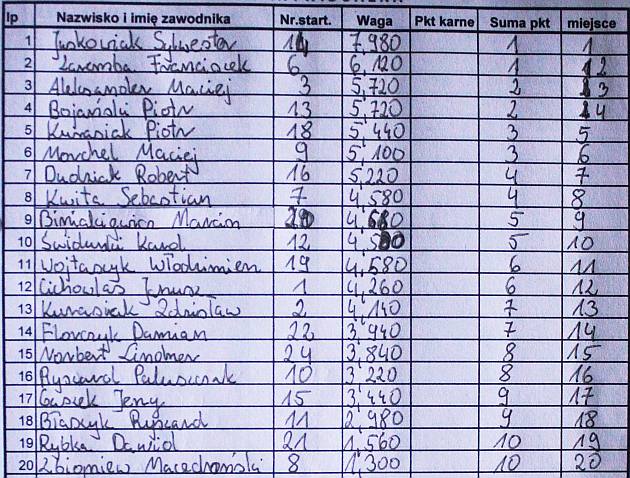 lp Nazwisko i imię zawodnika Nr.start. Waga Pkt karne Suma pkt miejsce
1 Juskowiak Sylwester 14 7,980 1 1
2 Zaremba Franciszek 6 6,120 1 2
3 Aleksander Maciej 3 5,720 2 3
4 Bojański Piotr 13 5,720 2 4
5 Kurasiak Piotr 18 5,440 3 5
6 Morchel Maciej 9 5,100 3 6
7 Dudziak Robert 16 5,220 4 7
8 Kwita Sebastian 7 4,580 4 8
9 Marcin 20 4,680 5 9
10 Karol 12 4,500 5 10
11 Wojtaszyk Włodzimierz 19 4,580 6 11
12 Cichowlas Janusz 1 4,260 6 12
13 Kurasiak Zdzisław 2 4,140 7 13
14 Florczyk Damian 22 3,940 7 14
15 Norbert Lindner 24 3,840 8 15
16 Ryszard Paluszczak 10 3,220 8 16
17 Gąsiek Jerzy 15 3,440 9 17
18 Błaszyk Ryszard 11 2,980 9 18
19 Rybka Dawid 21 1,560 10 19
20 Zbigniew 8 1,300 10 20